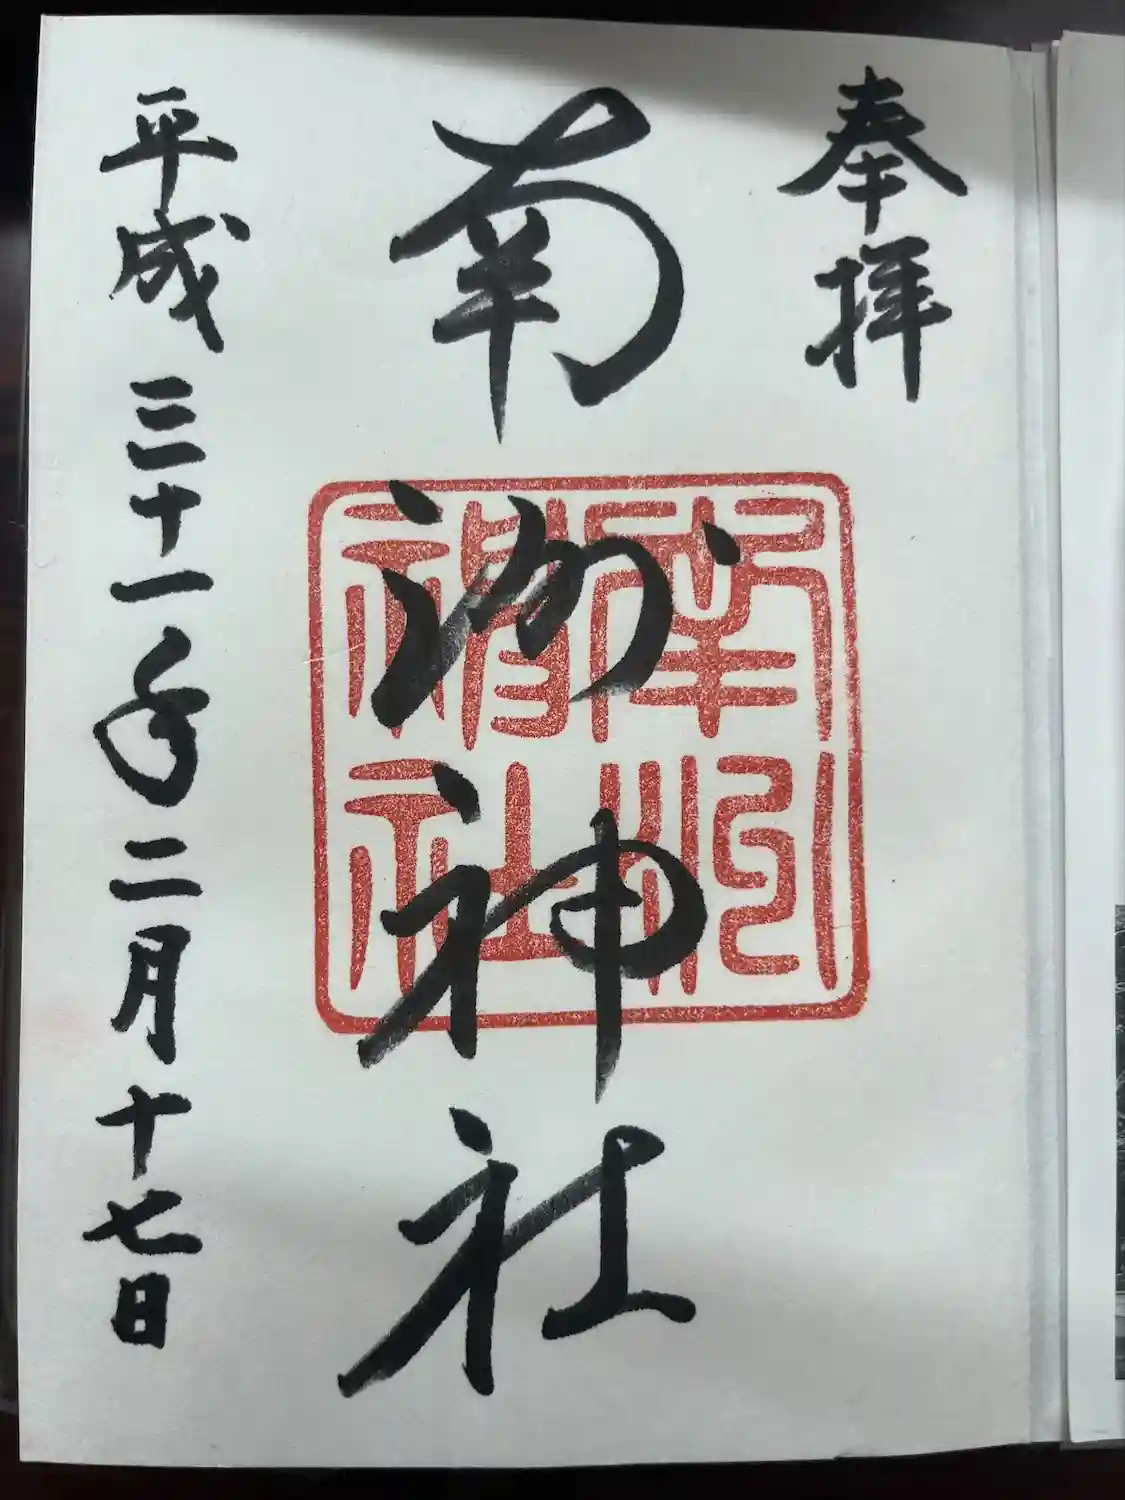 奉拝
南洲神社
平成三十一年二月十七日